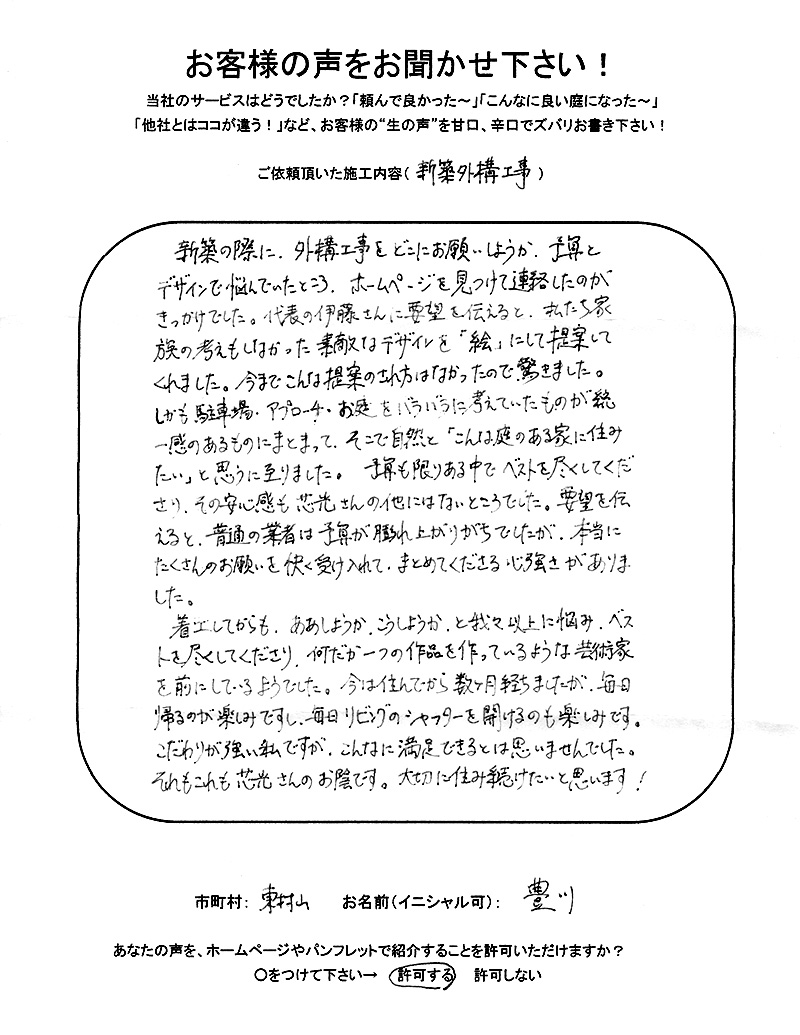 お客様の声をお聞かせ下さい！
当社のサービスはどうでしたか？「頼んで良かった～」「こんなに良い庭になった～」
「他社とはココが違う！」など、お客様の“生の声”を甘口、辛口でズバリお書き下さい！
ご依頼頂いた施工内容（ 新築外構工事 ）
新築の際に、外構工事をどこにお願いしようか、予算と
デザインで悩んでいたところ、ホームページを見つけて連絡したのが
きっかけでした。代表の伊藤さんに要望を伝えると、私たち家
族の考えもしなかった素敵なデザインを「絵」にして提案して
くれました。今までこんな提案のされ方はなかったので驚きました。
しかも駐車場・アプローチ・お庭をバラバラに考えていたものが統
一感のあるものにまとまって、そこで自然と「こんな庭のある家に住み
たい」と思うに至りました。 予算も限りある中でベストを尽くしてくだ
さり、その安心感も芯光さんの他にはないところでした。要望を伝
えると、普通の業者は予算が膨れ上がりがちでしたが、本当に
たくさんのお願いを快く受け入れて、まとめてくださる心強さがありま
した。
着工してからも、ああしようか、こうしようか、と我々以上に悩み、ベス
トを尽くしてくださり、何だか一つの作品を作っているような芸術家
を前にしているようでした。今は住んでから数ヶ月経ちましたが、毎日
帰るのが楽しみですし、毎日リビングのシャッターを開けるのも楽しみです。
こだわりが強い私ですが、こんなに満足できるとは思いませんでした。
それもこれも芯光さんのお陰です。大切に住み続けたいと思います！
市町村： 東村山 お名前（イニシャル可）： 豊川
あなたの声を、ホームページやパンフレットで紹介することを許可いただけますか？
○をつけて下さい→ 許可する 許可しない